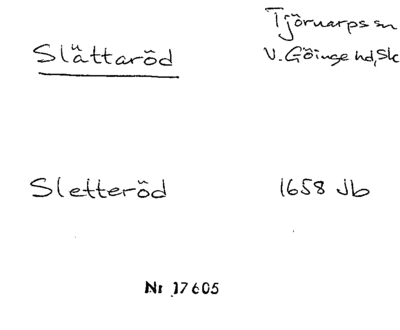 Slättaröd
Tjörnarps sn
V. Göinge hd, Sk
Sletteröd
1658 Jb
Nr 17605